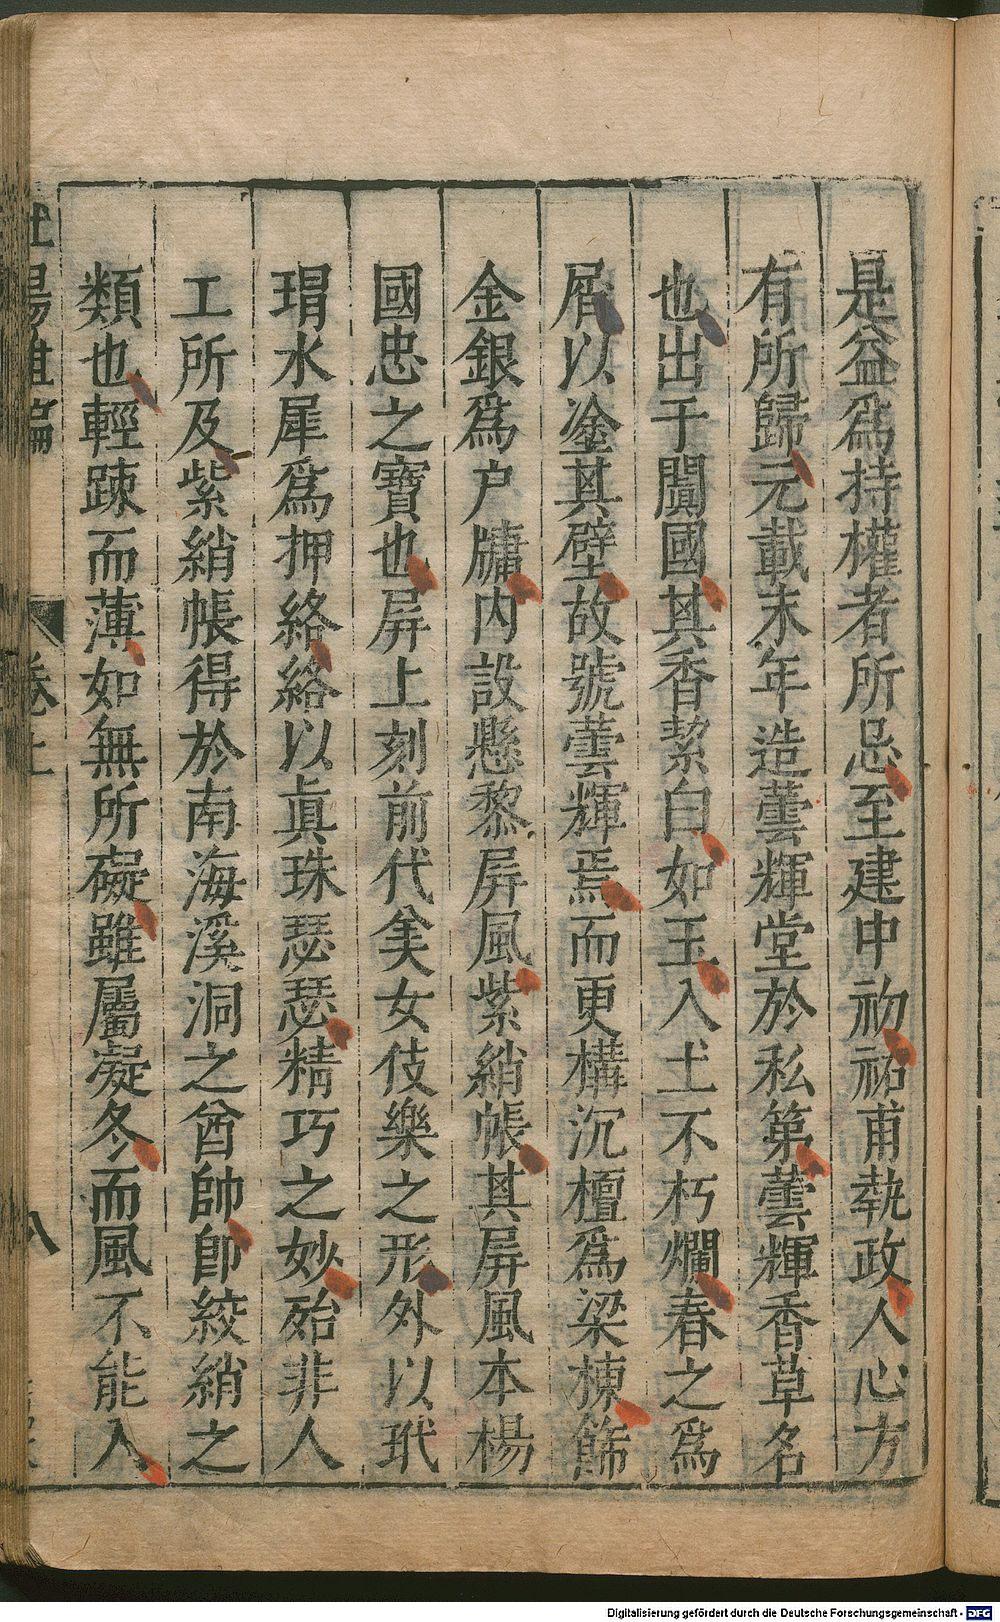 是益爲持權者所忌至建中初祐甫執政人心方
有所歸元載末年造蕓輝堂於私第蕓輝香草名
也出于闐國其香絜白如玉入土不朽爛舂之爲
屑以塗其壁故號蕓輝焉而更構沉檀爲梁棟飾
金銀爲户牖内設懸黎屏風紫綃帳其屏風本楊
國忠之寶也屏上刻前代美女伎樂之形外以玳
瑁水犀爲押絡絡以眞珠瑟瑟精巧之妙殆非人
工所及紫綃帳得於南海溪洞之酋帥卽絞綃之
類也輕踈而薄如無所礙雖屬凝冬而風不能入
卷上
八
Digitalisierung gefördert durch die Deutsche Forschungsgemeinschaft - DFG